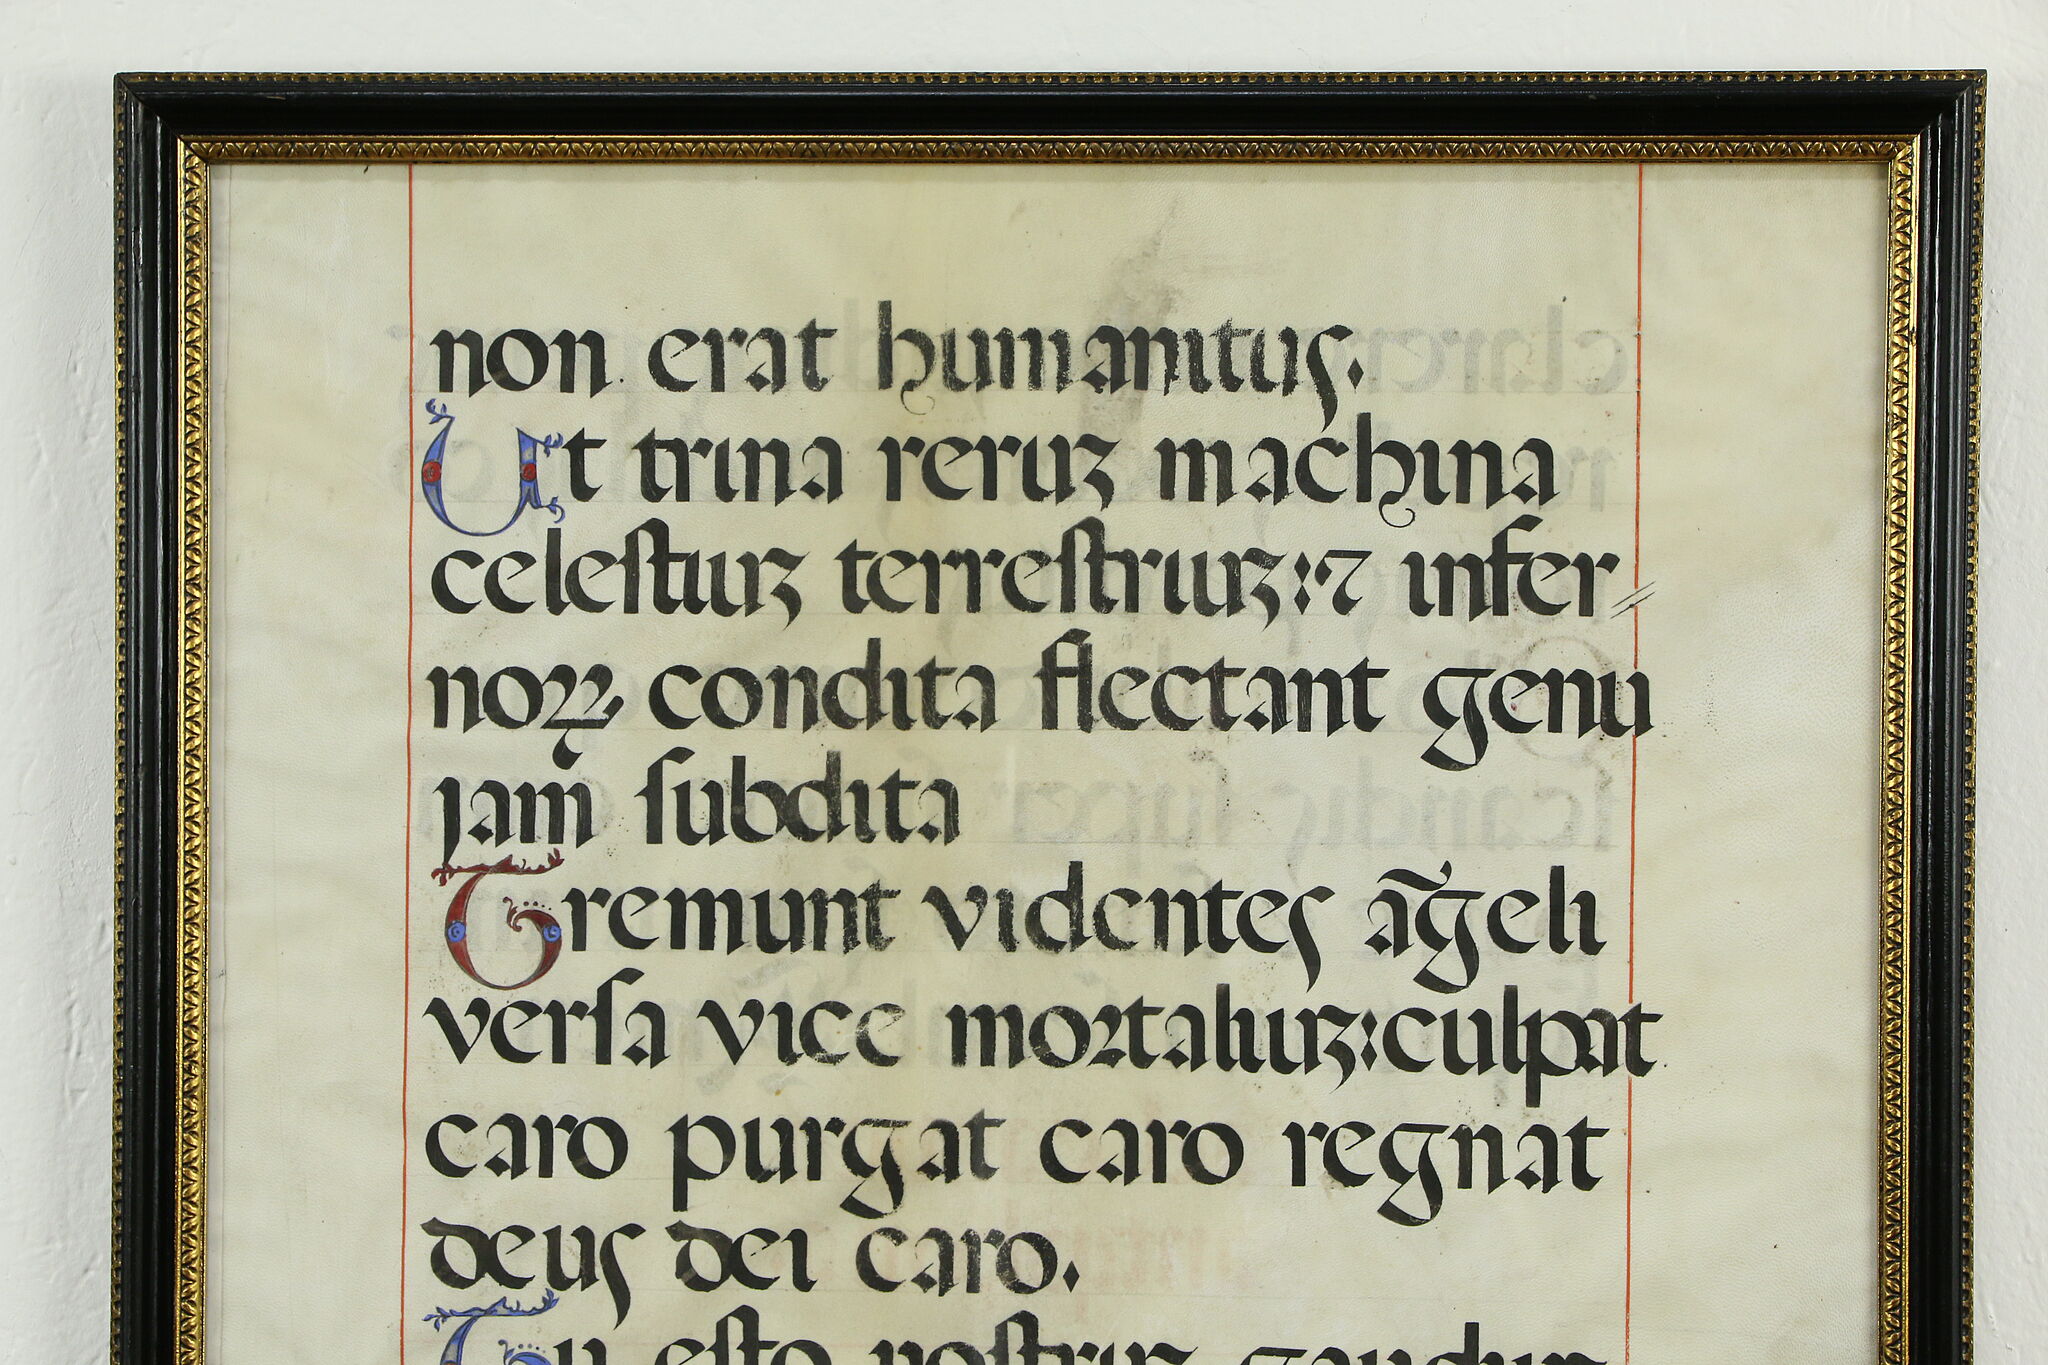 non erat humanitus.
Ut trina reruʒ machina
celeſtiuʒ terreſtriuʒ:⁊ infer⸗
noꝝ condita flectant genu
jam ſubdita
Tremunt videntes āgeli
verſa vice moꝛtaliuʒ:culpat
caro purgat caro regnat
deus dei caro.
Tu eſto noſtruʒ gaudiuʒ